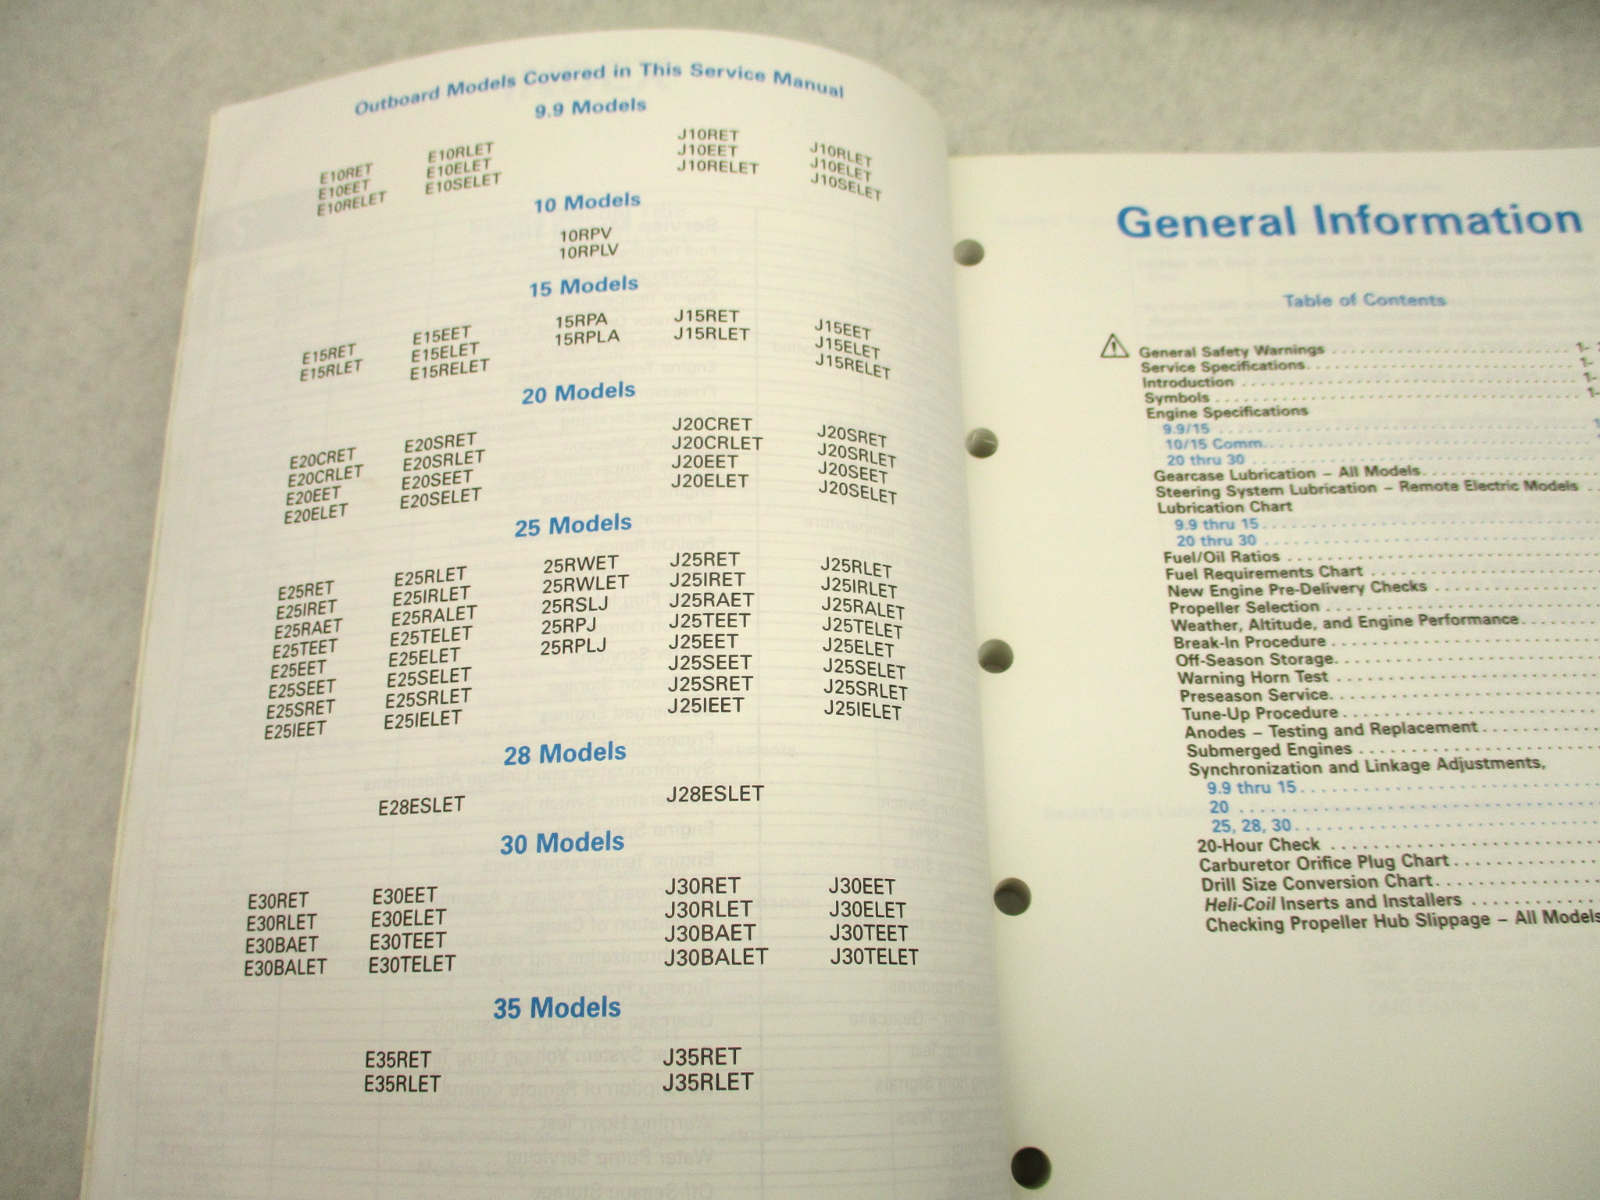 Outboard Models Covered in This Service Manual
9.9 Models
E10RET E10RLET J10RET J10RLET
E10EET E10ELET J10EET J10ELET
E10RELET E10SELET J10RELET J10SELET
10 Models
10RPV
10RPLV
15 Models
E15RET E15EET 15RPA J15RET J15EET
E15RLET E15ELET 15RPLA J15RLET J15ELET
E15RELET J15RELET
20 Models
E20CRET E20SRET J20CRET J20SRET
E20CRLET E20SRLET J20CRLET J20SRLET
E20EET E20SEET J20EET J20SEET
E20ELET E20SELET J20ELET J20SELET
25 Models
E25RET E25RLET 25RWET J25RET J25RLET
E25IRET E25IRLET 25RWLET J25IRET J25IRLET
E25RAET E25RALET 25RSLJ J25RAET J25RALET
E25TEET E25TELET 25RPJ J25TEET J25TELET
E25EET E25ELET 25RPLJ J25EET J25ELET
E25SEET E25SELET J25SEET J25SELET
E25SRET E25SRLET J25SRET J25SRLET
E25IEET E25IELET J25IEET J25IELET
28 Models
E28ESLET J28ESLET
30 Models
E30RET E30EET J30RET J30EET
E30RLET E30ELET J30RLET J30ELET
E30BAET E30TEET J30BAET J30TEET
E30BALET E30TELET J30BALET J30TELET
35 Models
E35RET J35RET
E35RLET J35RLET
General Information
Table of Contents
General Safety Warnings 1-
Service Specifications 1-
Introduction 1-
Symbols 1-
Engine Specifications
9.9/15
10/15 Comm.
20 thru 30
Gearcase Lubrication – All Models
Steering System Lubrication – Remote Electric Models
Lubrication Chart
9.9 thru 15
20 thru 30
Fuel/Oil Ratios
Fuel Requirements Chart
New Engine Pre-Delivery Checks
Propeller Selection
Weather, Altitude, and Engine Performance
Break-In Procedure
Off-Season Storage
Warning Horn Test
Preseason Service
Tune-Up Procedure
Anodes – Testing and Replacement
Submerged Engines
Synchronization and Linkage Adjustments,
9.9 thru 15
20
25, 28, 30
20-Hour Check
Carburetor Orifice Plug Chart
Drill Size Conversion Chart
Heli-Coil Inserts and Installers
Checking Propeller Hub Slippage – All Models